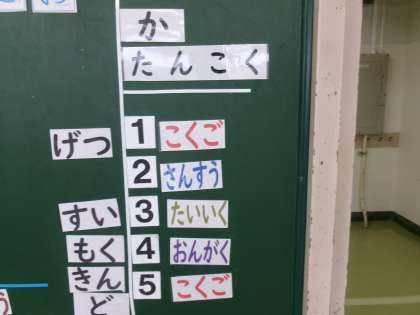 か
たんこく
げつ
1 こくご
2 さんすう
すい
3 たいいく
もく
4 おんがく
きん
5 こくご
ど
う